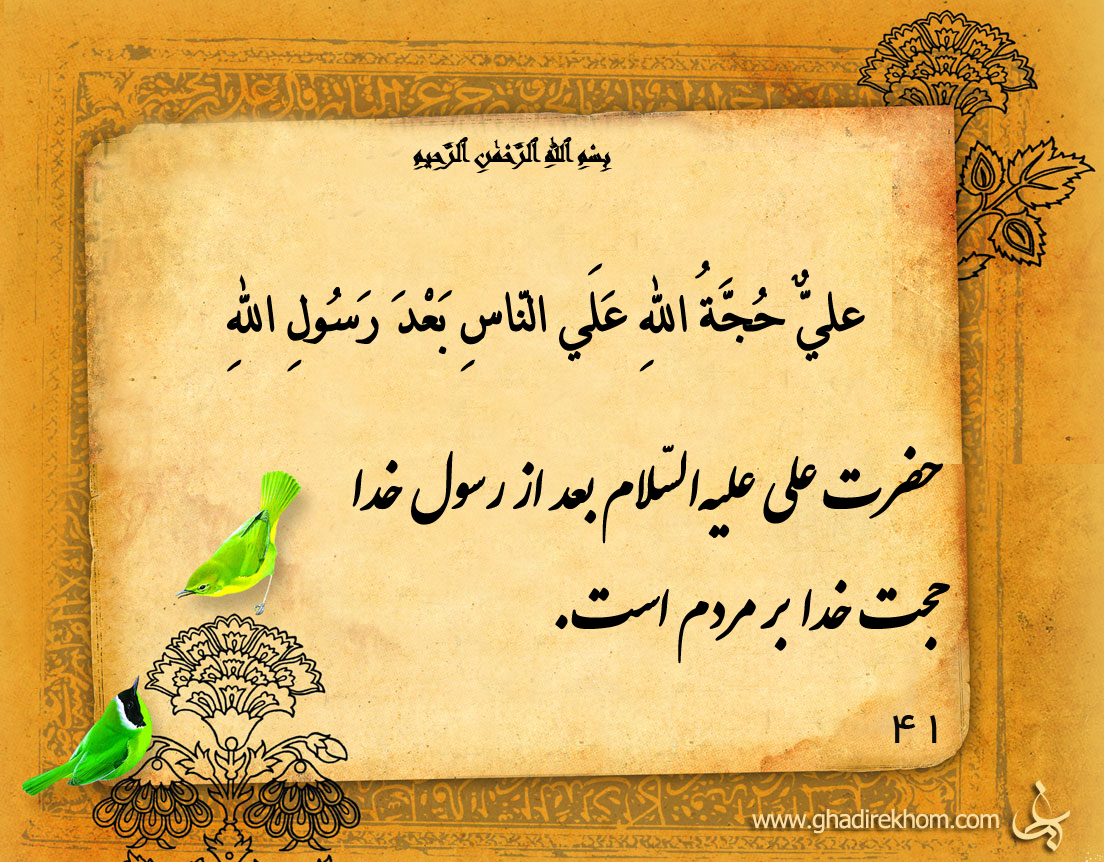 بِسْمِ اللهِ الرَّحْمٰنِ الرَّحِيمِ
عليٌّ حُجَّةُ اللهِ عَلَي النّاسِ بَعْدَ رَسُولِ اللهِ
حضرت علی علیه‌السّلام بعد از رسول خدا
حجت خدا بر مردم است.
۴۱
www.ghadirekhom.com